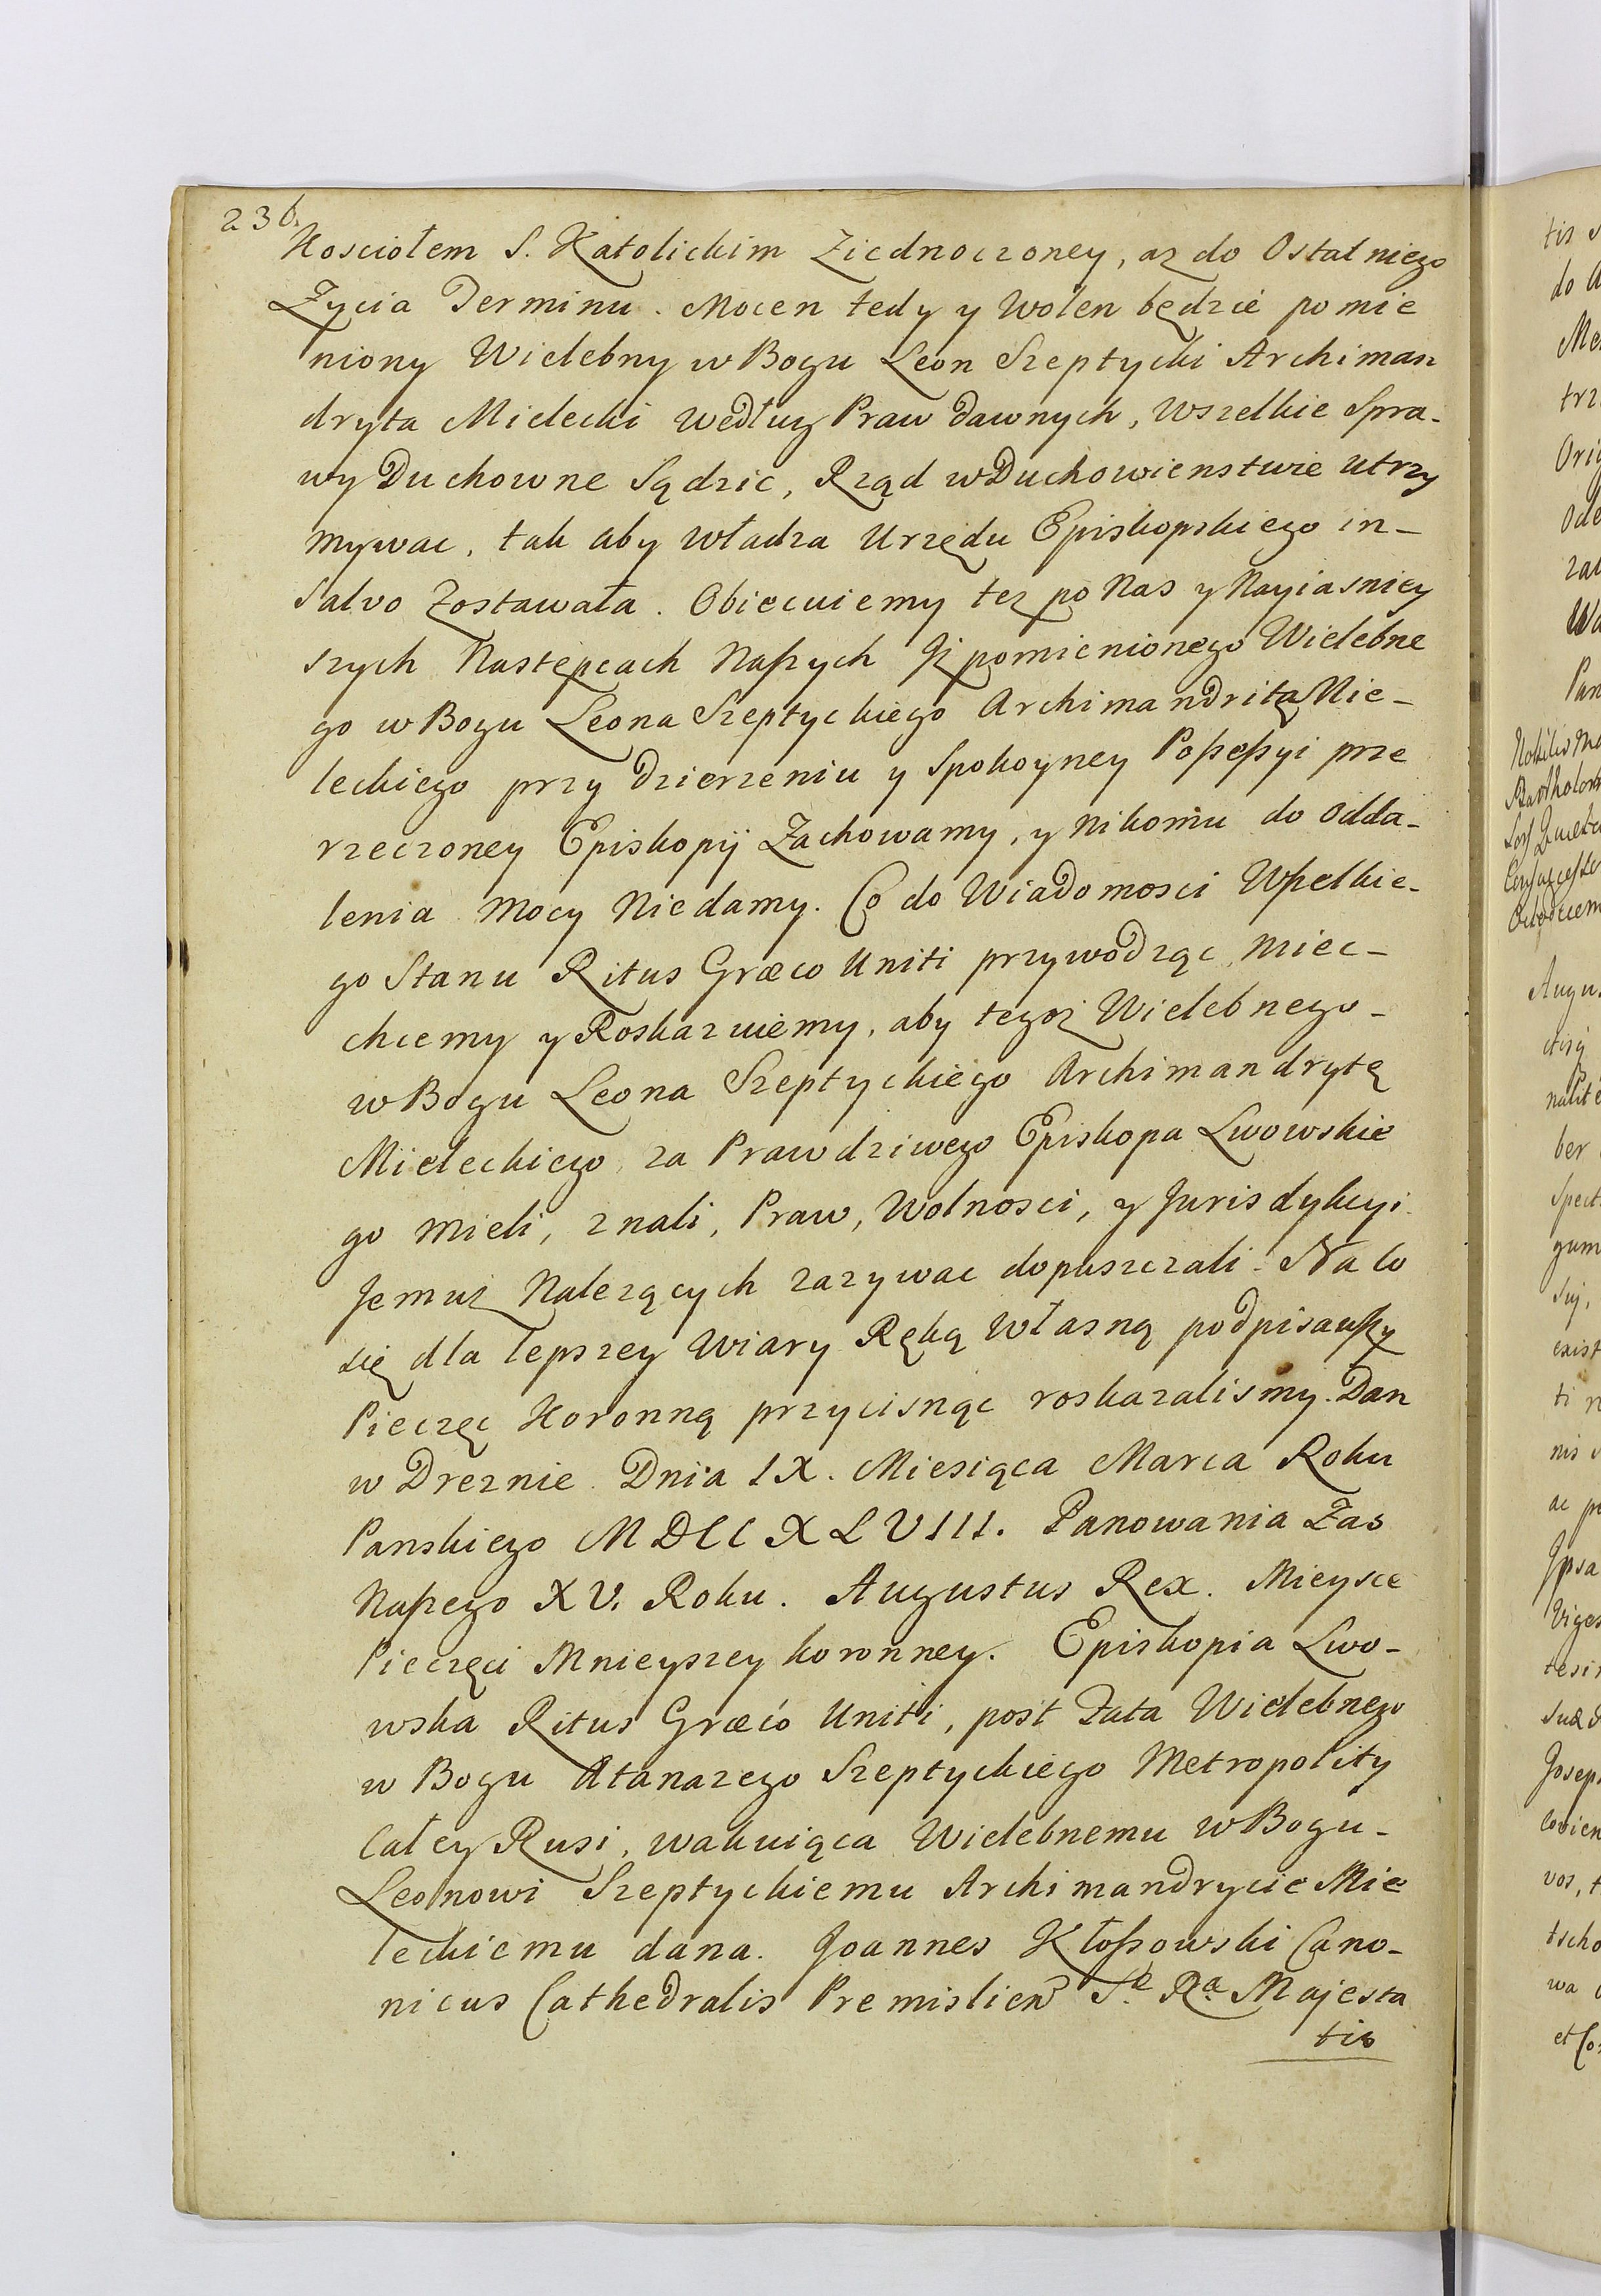 236.
Kosciołem S. Katolickim Ziednoczoney, az do Ostatniego
Zycia Terminu. Mocen tedy y Wolen będzie pomie
niony Wielebny w Bogu Leon Szeptycki Archiman
dryta Mielecki według Praw dawnych, Wszelkie Spra-
wy Duchowne Sądzic, Rząd w Duchowienstwie utrzy
mywac, tak aby władza Urzędu Episkopskiego in-
Salvo zostawała. Obiecuiemy tez po Nas y Nayiasniey
szych Nastepcach Naszych Iż pomienionego Wielebne
go w Bogu Leona Szeptyckiego Archimandritę Mie-
leckiego przy dzierzeniu y Spokoyney Possessyi prze
rzeczoney Episkopij Zachowamy, y nikomu do odda-
lenia Mocy Niedamy. Co do Wiadomosci Wszelkie-
go Stanu Ritus Græco Uniti przywodząc, miec-
chcemy y Roskazuiemy, aby tegoż Wielebnego-
w Bogu Leona Szeptyckiego Archimandrytę
Mieleckiego, za Prawdziwego Episkopa Lwowskie
go mieli, znali, Praw, Wolnosci, y Jurisdykcyi
Jemuż Nalezących zazywac dopuszczali. Na co
się dla lepszey Wiary Ręką Własną podpisawszy
Pieczęc Koronną przycisnąc roskazalismy. Dan
w Dreznie. Dnia IX. Miesiąca Marca Roku
Panskiego MDCCXLVIII. Panowania Zas
Naszego XV. Roku. Augustus Rex. Mieysce
Pieczęci Mnieyszey koronney. Episkopia Lwo-
wska Ritus Græco Uniti, post Fata Wielebnego
w Bogu Atanazego Szeptyckiego Metropolity
Całey Rusi, wakuiąca Wielebnemu w Bogu-
Leonowi Szeptyckiemu Archimandrycie Mie
leckiemu dana. Joannes Kłossowski Cano-
nicus Cathedralis Premislien S. Ra Majesta
tis